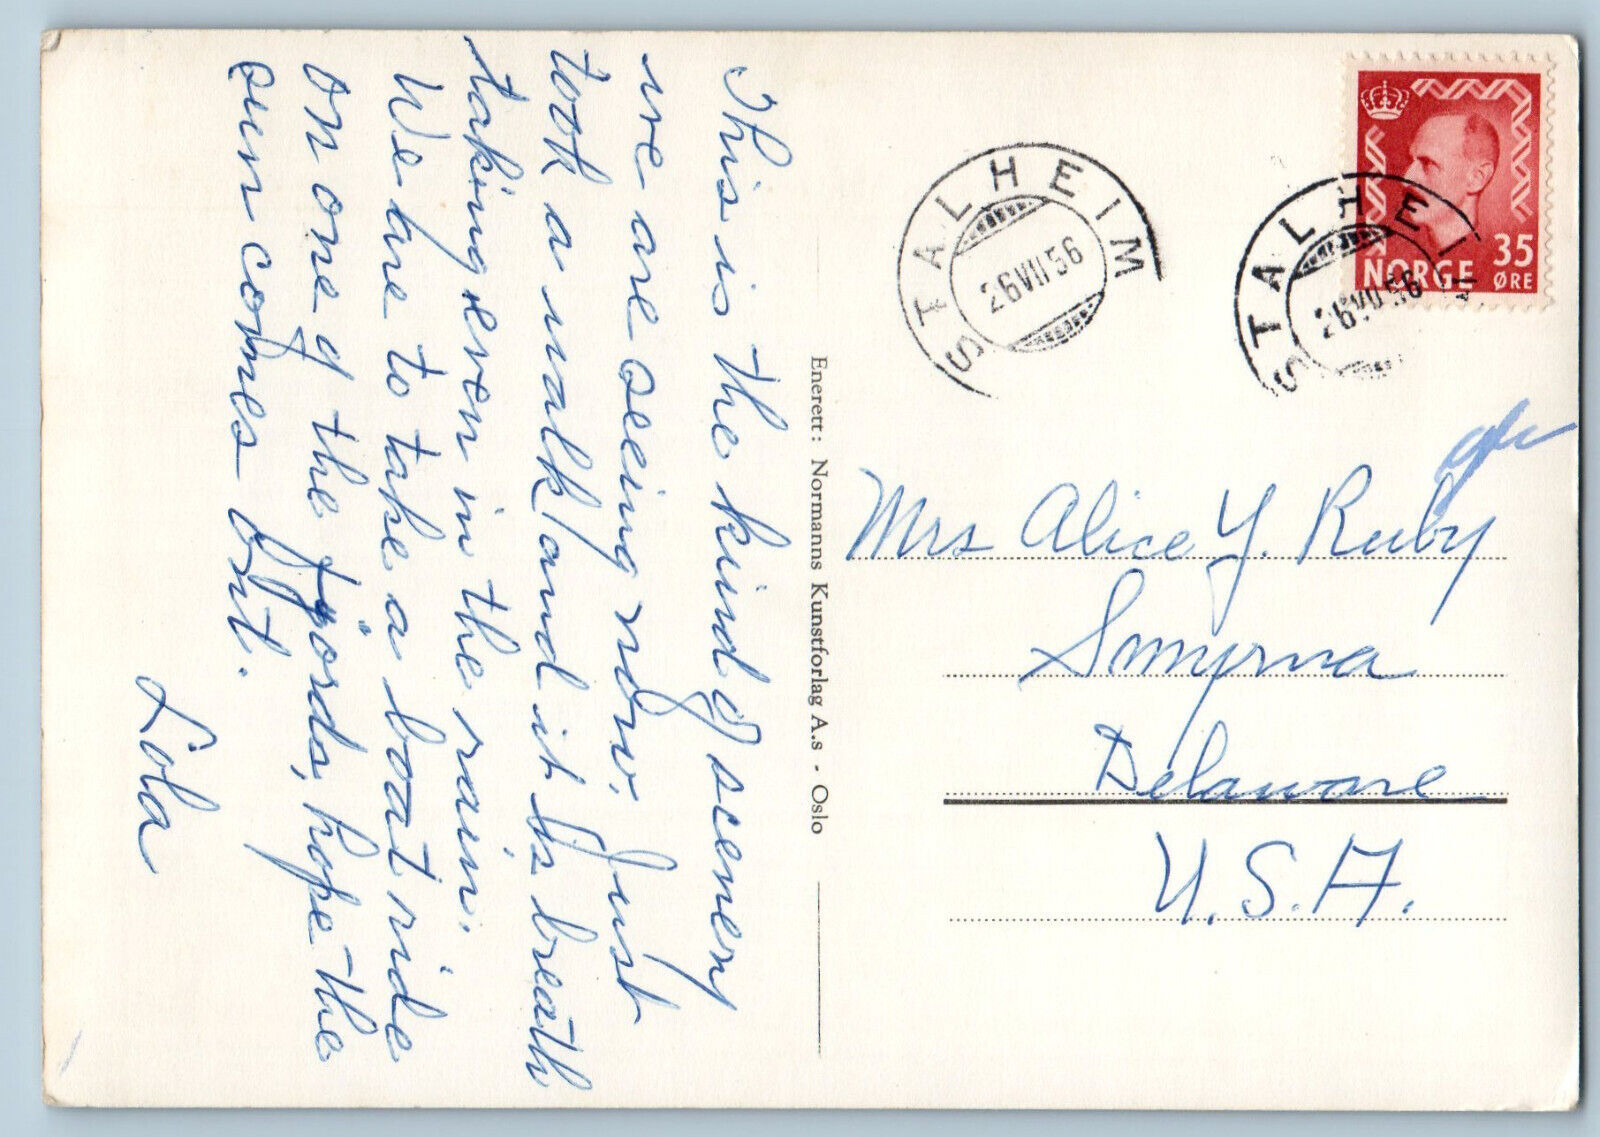 This is the kind of scenery
we are seeing now. Just
took a walk and it is breath
taking even in the rain.
We are to take a boat ride
on one of the fjords, hope the
sun comes out.
Lola
Enerett: Normanns Kunstforlag A.s - Oslo
STALHEIM
26 VII 56
STALHEIM
26 VII 56
NORGE 35 ØRE
Mrs Alice Y. Ruby
Smyrna
Delaware
U.S.A.